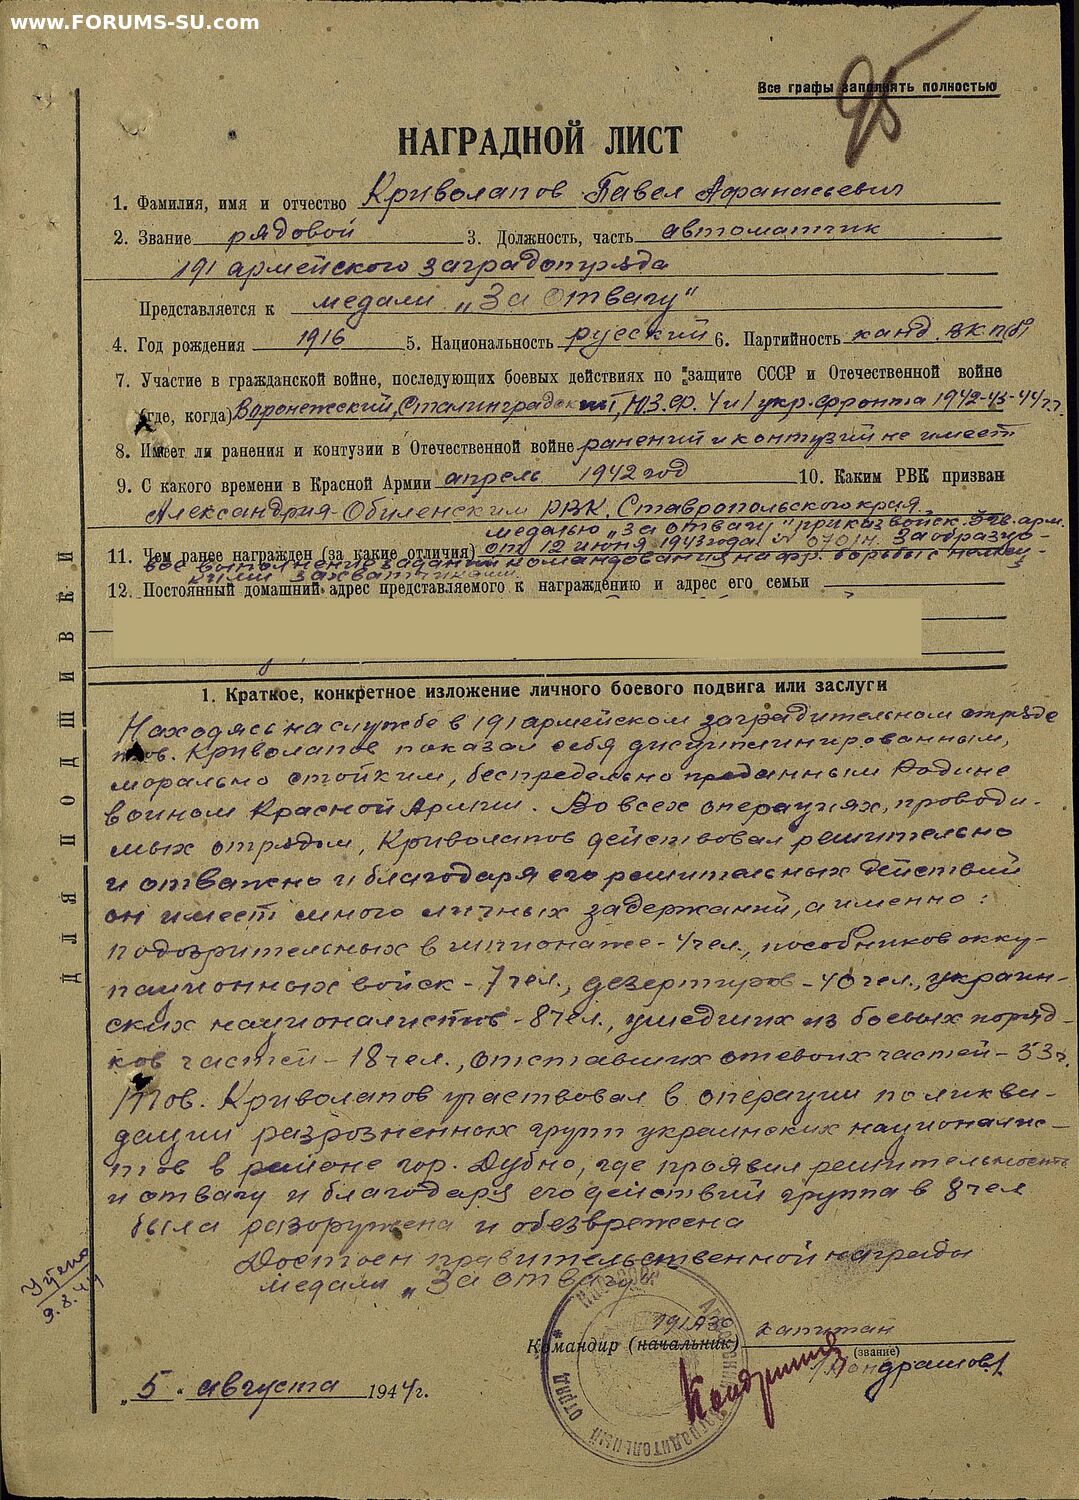 www.FORUMS-SU.com
Все графы заполнять полностью
95
НАГРАДНОЙ ЛИСТ
1. Фамилия, имя и отчество Криволапов Павел Афанасьевич
2. Звание рядовой 3. Должность, часть автоматчик
191 армейского заградотряда
Представляется к медали „За отвагу"
4. Год рождения 1916 5. Национальность русский 6. Партийность канд. ВКП(б)
7. Участие в гражданской войне, последующих боевых действиях по защите СССР и Отечественной войне
(где, когда) Воронежский, Сталинградский, Ю.З.Ф. 4 и 1 укр. фронта 1942-43-44 г.г.
8. Имеет ли ранения и контузии в Отечественной войне ранений и контузий не имеет
9. С какого времени в Красной Армии апрель 1942 год 10. Каким РВК призван
Александрия-Обиленским РВК. Ставропольского края.
медалью „За отвагу" приказ войск. арм.
11. Чем ранее награжден (за какие отличия) от 12 июня 1943 года За образцо-
вое выполнение заданий командования на фр. борьбы с немец-
кими захватчиками.
12. Постоянный домашний адрес представляемого к награждению и адрес его семьи
1. Краткое, конкретное изложение личного боевого подвига или заслуги
Находясь на службе в 191 армейском заградительном отряде
тов. Криволапов показал себя дисциплинированным,
морально стойким, беспредельно преданным Родине
воином Красной Армии. Во всех операциях, проводи-
мых отрядом, Криволапов действовал решительно
и отважно и благодаря его решительных действий
он имеет много личных задержаний, а именно:
подозрительных в шпионаже - 4 чел., пособников окку-
пационных войск - 7 чел., дезертиров - 40 чел., украин-
ских националистов - 8 чел., ушедших из боевых поряд-
ков частей - 18 чел., отставших от своих частей - 53 ч.
Тов. Криволапов участвовал в операции по ликви-
дации разрозненных групп украинских националис-
тов в районе гор. Дубно, где проявил решительность
и отвагу и благодаря его действий группа в 8 чел
была разоружена и обезврежена
Достоен правительственной награды
медали „За отвагу"
Учтено
9.8.44
191 АЗО капитан
Командир (начальник)
(звание)
/Кондрашов/
„5" августа 1944 г.
Армейский заградительный отряд
ДЛЯ ПОДШИВКИ